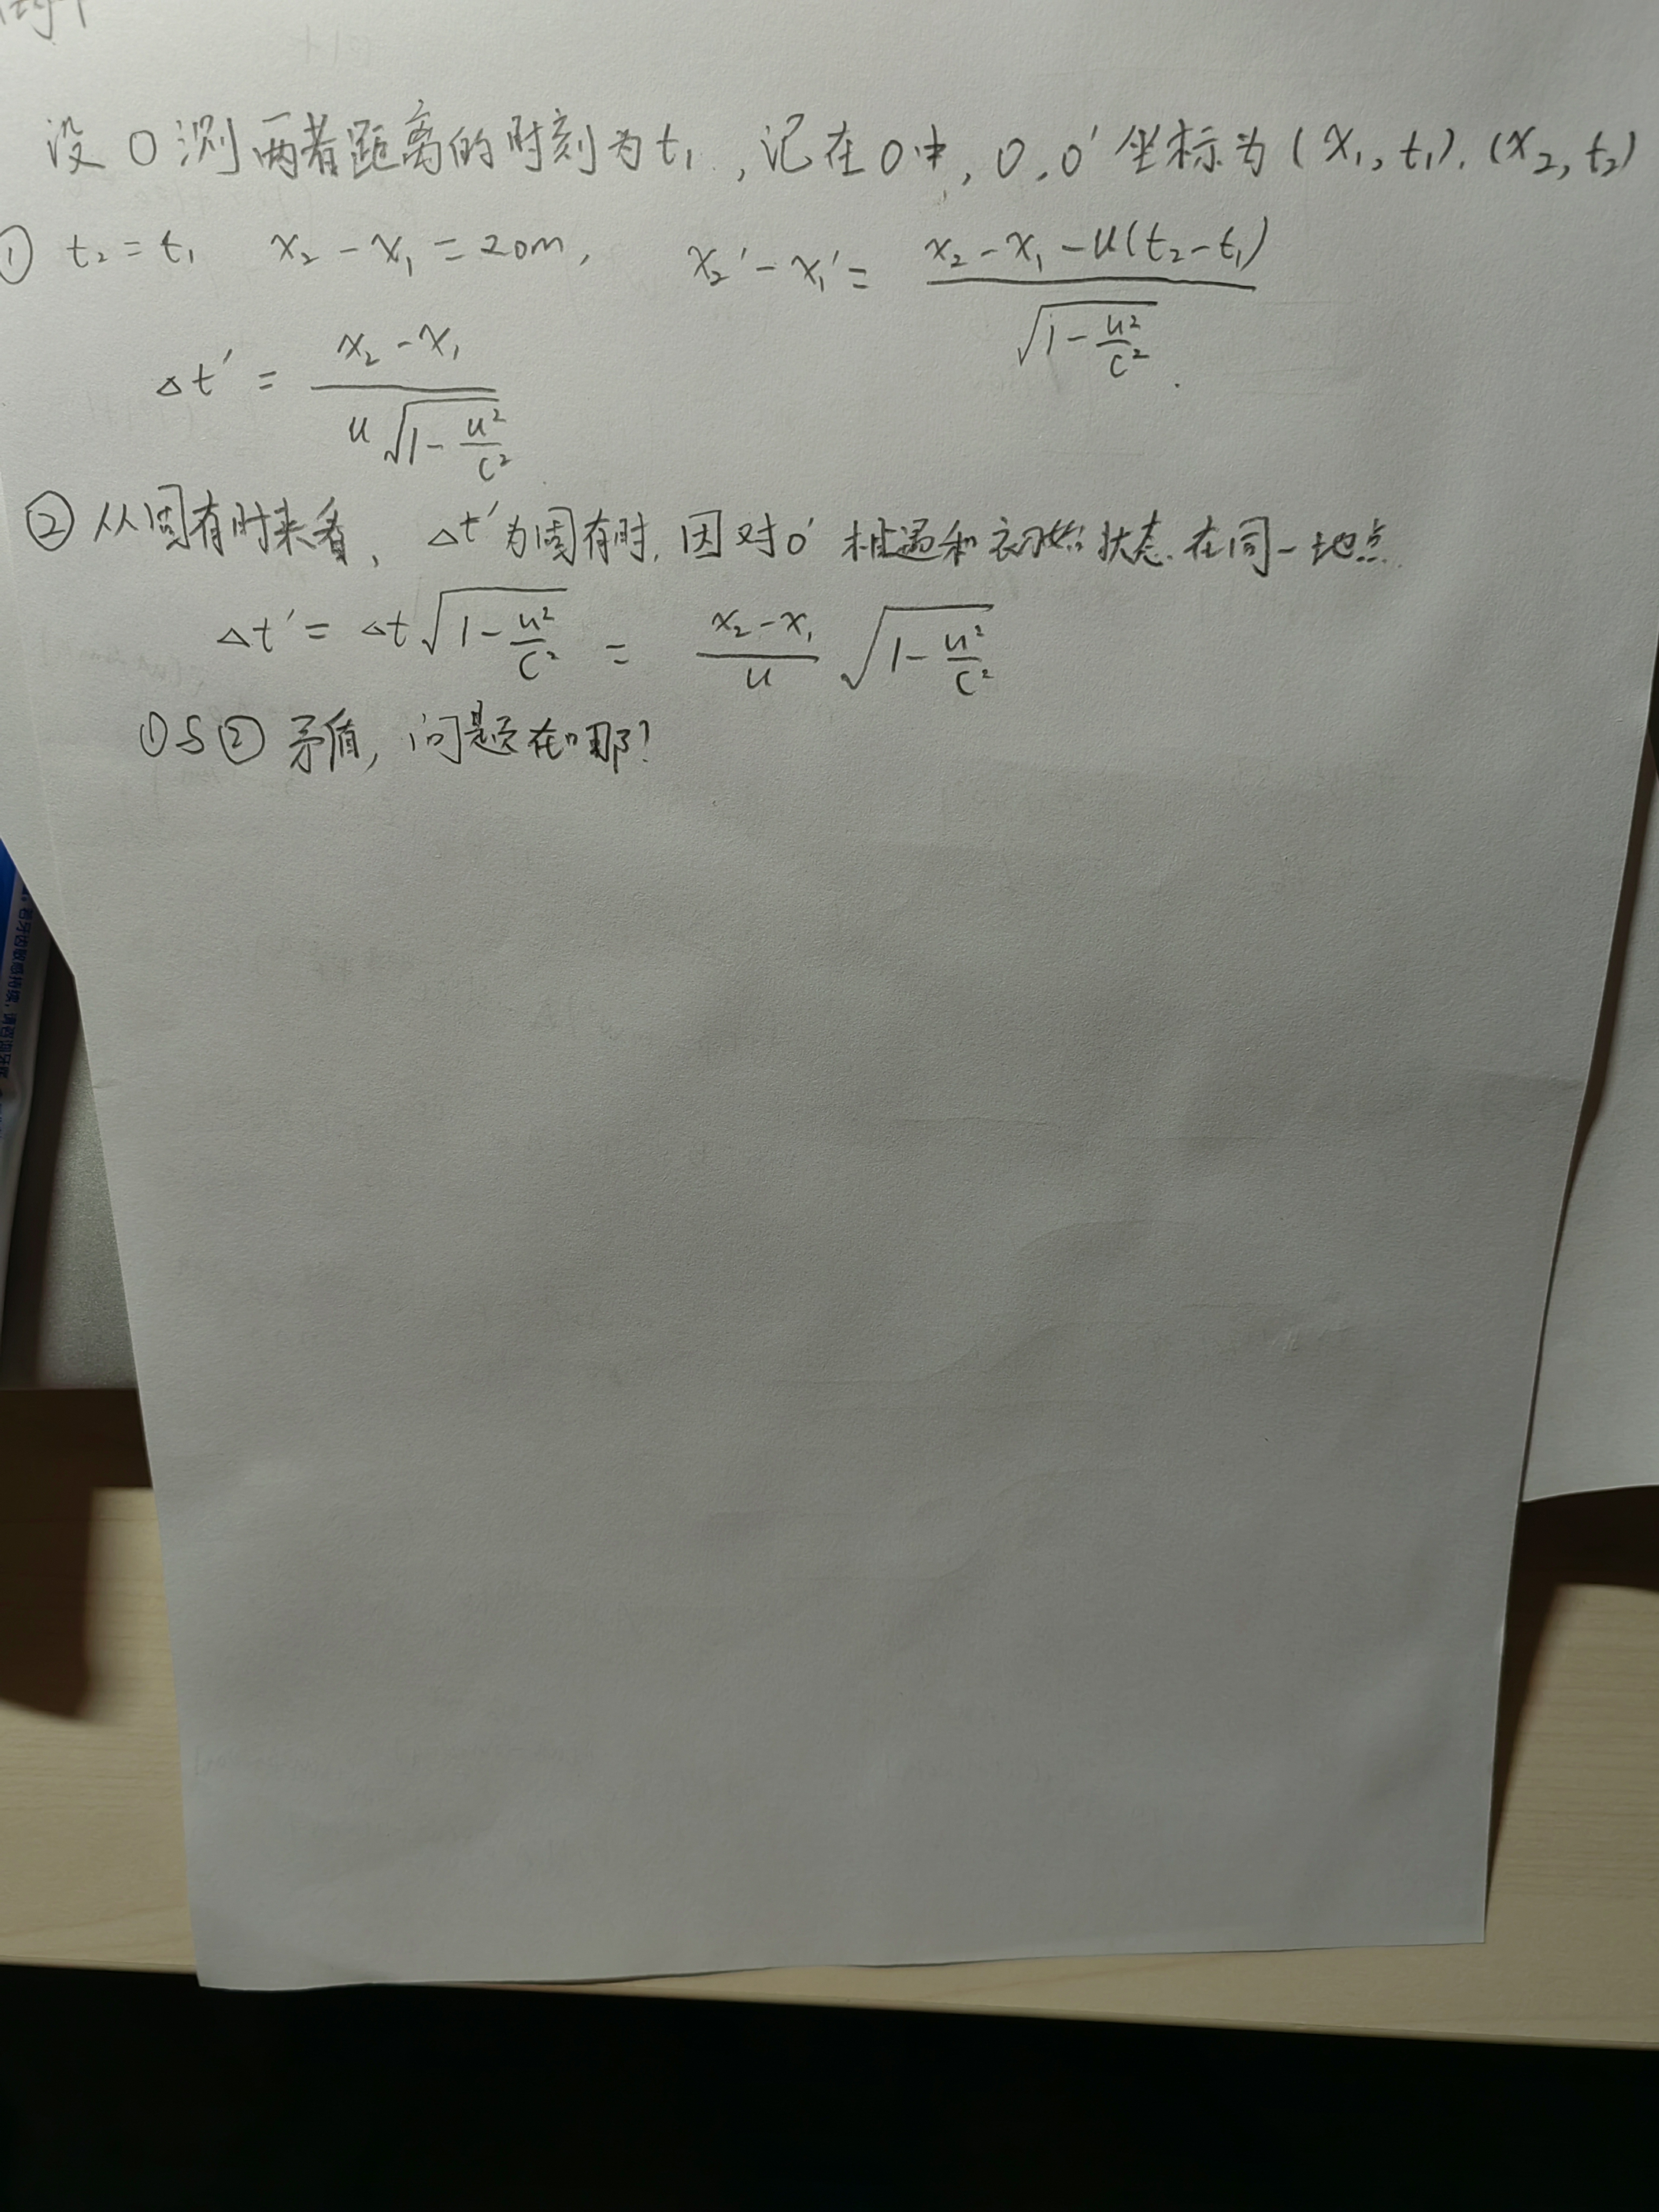 设 O 测两者距离的时刻为 t₁,记在 O 中, O, O' 坐标为 (x₁, t₁). (x₂, t₂)
① t₂ = t₁ x₂ - x₁ = 20m, x₂' - x₁' = \frac{x₂ - x₁ - u(t₂ - t₁)}{\sqrt{1 - \frac{u²}{c²}}}.
Δt' = \frac{x₂ - x₁}{u\sqrt{1 - \frac{u²}{c²}}}
② 从固有时来看, Δt' 为固有时, 因对 O' 相遇和初始状态在同一地点.
Δt' = Δt\sqrt{1 - \frac{u²}{c²}} = \frac{x₂ - x₁}{u}\sqrt{1 - \frac{u²}{c²}}
①与② 矛盾, 问题在哪?